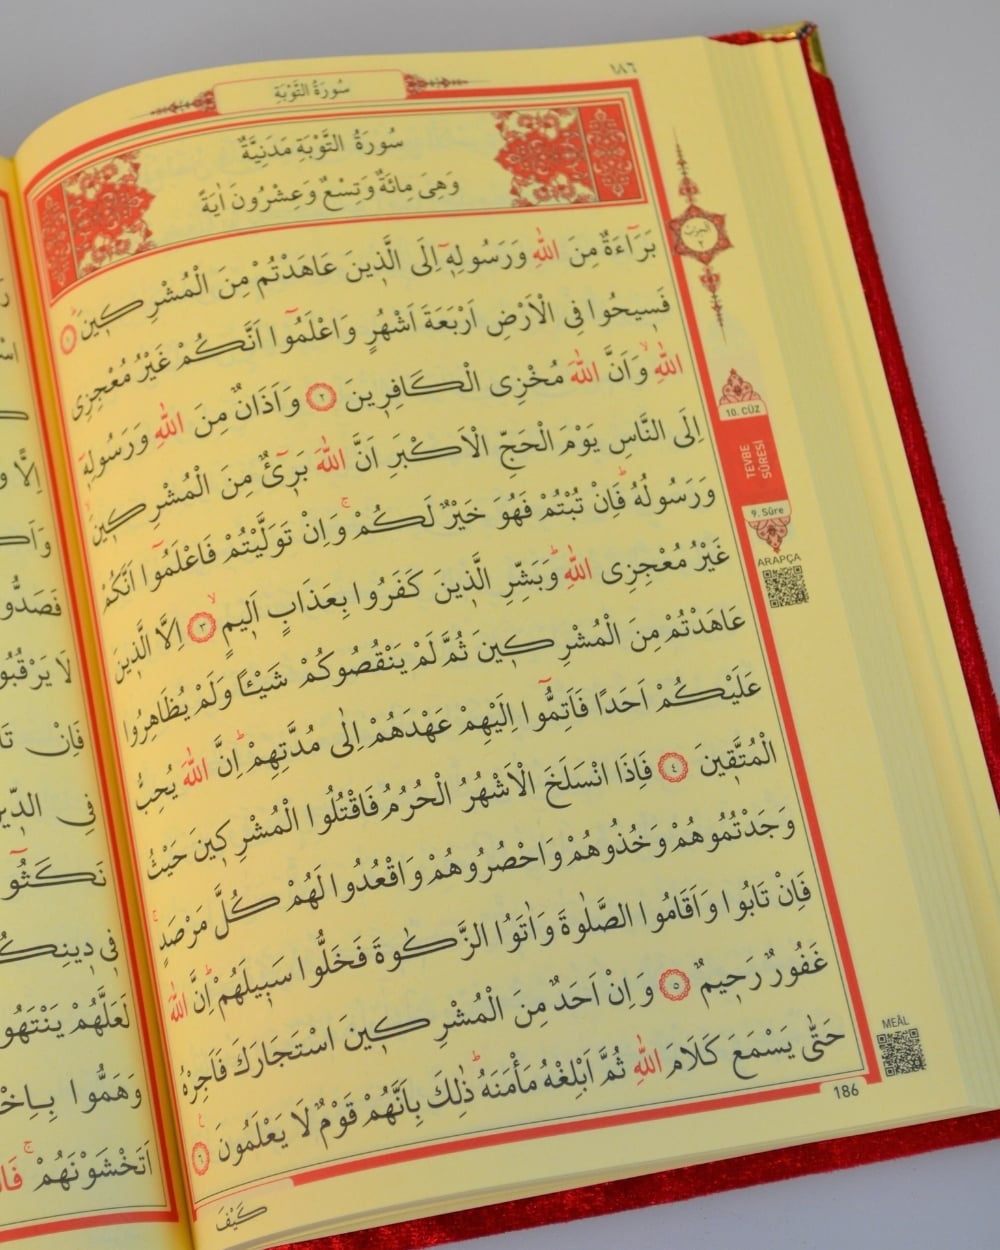 ١٨٦
سُورَةُ التَّوْبَةِ
سُورَةُ التَّوْبَةِ مَدَنِيَّةٌ
وَهِىَ مِائَةٌ وَتِسْعٌ وَعِشْرُونَ اٰيَةً
بَرَٓاءَةٌ مِنَ اللّٰهِ وَرَسُولِه۪ٓ اِلَى الَّذ۪ينَ عَاهَدْتُمْ مِنَ الْمُشْرِك۪ينَۜ ﴿١﴾
فَس۪يحُوا فِى الْاَرْضِ اَرْبَعَةَ اَشْهُرٍ وَاعْلَمُٓوا اَنَّكُمْ غَيْرُ مُعْجِزِى
اللّٰهِۙ وَاَنَّ اللّٰهَ مُخْزِى الْكَافِر۪ينَ ﴿٢﴾ وَاَذَانٌ مِنَ اللّٰهِ وَرَسُولِه۪ٓ
اِلَى النَّاسِ يَوْمَ الْحَجِّ الْاَكْبَرِ اَنَّ اللّٰهَ بَر۪ٓئٌ مِنَ الْمُشْرِك۪ينَۙ
وَرَسُولُهُۜ فَاِنْ تُبْتُمْ فَهُوَ خَيْرٌ لَكُمْۚ وَاِنْ تَوَلَّيْتُمْ فَاعْلَمُٓوا اَنَّكُمْ
غَيْرُ مُعْجِزِى اللّٰهِۜ وَبَشِّرِ الَّذ۪ينَ كَفَرُوا بِعَذَابٍ اَل۪يمٍۙ ﴿٣﴾ اِلَّا الَّذ۪ينَ
عَاهَدْتُمْ مِنَ الْمُشْرِك۪ينَ ثُمَّ لَمْ يَنْقُصُوكُمْ شَيْـًٔا وَلَمْ يُظَاهِرُوا
عَلَيْكُمْ اَحَدًا فَاَتِمُّٓوا اِلَيْهِمْ عَهْدَهُمْ اِلٰى مُدَّتِهِمْۜ اِنَّ اللّٰهَ يُحِبُّ
الْمُتَّق۪ينَ ﴿٤﴾ فَاِذَا انْسَلَخَ الْاَشْهُرُ الْحُرُمُ فَاقْتُلُوا الْمُشْرِك۪ينَ حَيْثُ
وَجَدْتُمُوهُمْ وَخُذُوهُمْ وَاحْصُرُوهُمْ وَاقْعُدُوا لَهُمْ كُلَّ مَرْصَدٍۚ
فَاِنْ تَابُوا وَاَقَامُوا الصَّلٰوةَ وَاٰتَوُا الزَّكٰوةَ فَخَلُّوا سَب۪يلَهُمْۜ اِنَّ اللّٰهَ
غَفُورٌ رَح۪يمٌ ﴿٥﴾ وَاِنْ اَحَدٌ مِنَ الْمُشْرِك۪ينَ اسْتَجَارَكَ فَاَجِرْهُ
حَتّٰى يَسْمَعَ كَلَامَ اللّٰهِ ثُمَّ اَبْلِغْهُ مَأْمَنَهُۜ ذٰلِكَ بِاَنَّهُمْ قَوْمٌ لَا يَعْلَمُونَ۟ ﴿٦﴾
كَيْفَ
الحزب
٢
10. CÜZ
TEVBE
SÛRESİ
9. Sûre
ARAPÇA
MEÂL
186
اِلَّا
فَصَدُّو
لَا يَرْقُبُو
فَاِنْ تَا
فِى الدّ۪ي
نَكَثُٓو
ف۪ى د۪ينِكُ
لَعَلَّهُمْ يَنْتَهُو
وَهَمُّوا بِاِخْ
اَتَخْشَوْنَهُمْۚ فَا